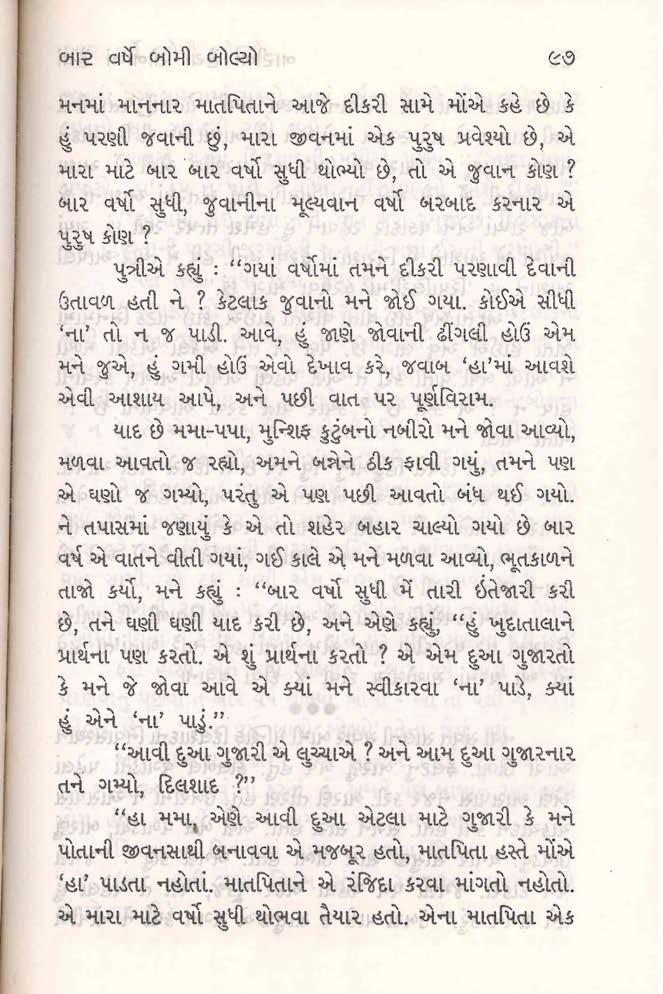 બાર વર્ષે બોમી બોલ્યો ૯૭
મનમાં માનનાર માતપિતાને આજે દીકરી સામે મોંએ કહે છે કે
હું પરણી જવાની છું, મારા જીવનમાં એક પુરુષ પ્રવેશ્યો છે, એ
મારા માટે બાર બાર વર્ષો સુધી થોભ્યો છે, તો એ જુવાન કોણ ?
બાર વર્ષો સુધી, જુવાનીના મૂલ્યવાન વર્ષો બરબાદ કરનાર એ
પુરુષ કોણ ?
પુત્રીએ કહ્યું : ‘‘ગયાં વર્ષોમાં તમને દીકરી પરણાવી દેવાની
ઉતાવળ હતી ને ? કેટલાક જુવાનો મને જોઈ ગયા. કોઈએ સીધી
‘ના’ તો ન જ પાડી. આવે, હું જાણે જોવાની ઢીંગલી હોઉં એમ
મને જુએ, હું ગમી હોઉં એવો દેખાવ કરે, જવાબ ‘હા’માં આવશે
એવી આશાય આપે, અને પછી વાત પર પૂર્ણવિરામ.
યાદ છે મમા-પપા, મુન્શિફ કુટુંબનો નબીરો મને જોવા આવ્યો,
મળવા આવતો જ રહ્યો, અમને બન્નેને ઠીક ફાવી ગયું, તમને પણ
એ ઘણો જ ગમ્યો, પરંતુ એ પણ પછી આવતો બંધ થઈ ગયો.
ને તપાસમાં જણાયું કે એ તો શહેર બહાર ચાલ્યો ગયો છે બાર
વર્ષ એ વાતને વીતી ગયાં, ગઈ કાલે એ મને મળવા આવ્યો, ભૂતકાળને
તાજો કર્યો, મને કહ્યું : ‘‘બાર વર્ષો સુધી મેં તારી ઈંતેજારી કરી
છે, તને ઘણી ઘણી યાદ કરી છે, અને એણે કહ્યું, ‘‘હું ખુદાતાલાને
પ્રાર્થના પણ કરતો. એ શું પ્રાર્થના કરતો ? એ એમ દુઆ ગુજારતો
કે મને જે જોવા આવે એ ક્યાં મને સ્વીકારવા ‘ના’ પાડે, ક્યાં
હું એને ‘ના’ પાડું.’’
‘‘આવી દુઆ ગુજારી એ લુચ્ચાએ ? અને આમ દુઆ ગુજારનાર
તને ગમ્યો, દિલશાદ ?’’
‘‘હા મમા, એણે આવી દુઆ એટલા માટે ગુજારી કે મને
પોતાની જીવનસાથી બનાવવા એ મજબૂર હતો, માતપિતા હસ્તે મોંએ
‘હા’ પાડતા નહોતાં. માતપિતાને એ રંજિદા કરવા માંગતો નહોતો.
એ મારા માટે વર્ષો સુધી થોભવા તૈયાર હતો. એના માતપિતા એક